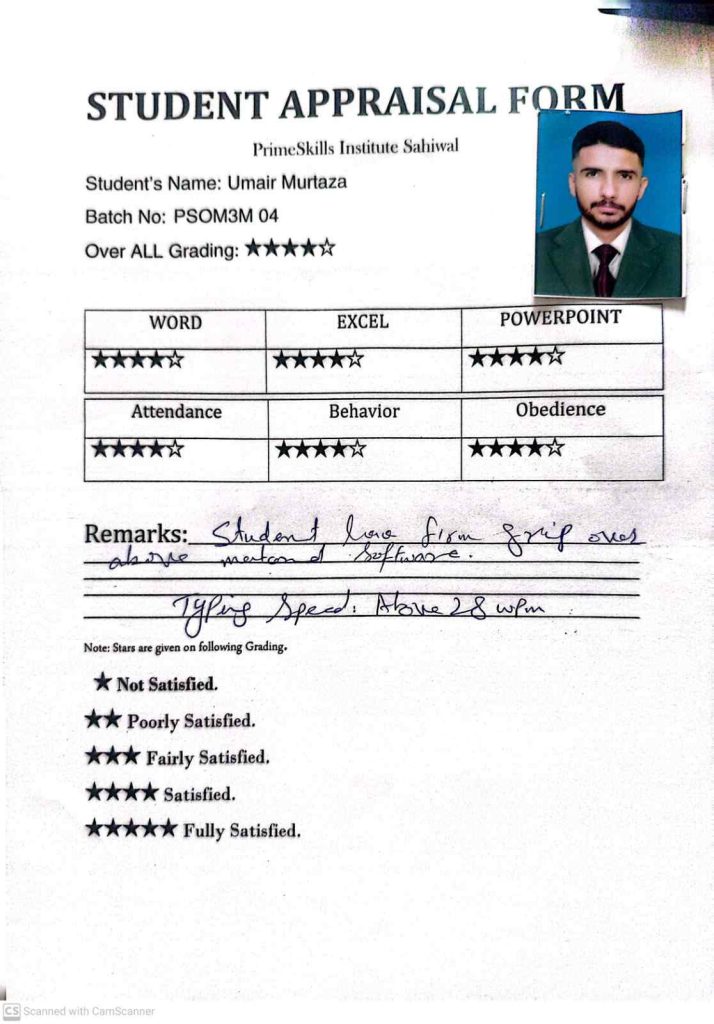 STUDENT APPRAISAL FORM
PrimeSkills Institute Sahiwal
Student's Name: Umair Murtaza
Batch No: PSOM3M 04
Over ALL Grading: ★★★★☆
WORD EXCEL POWERPOINT
★★★★☆ ★★★★☆ ★★★★☆
Attendance Behavior Obedience
★★★★☆ ★★★★☆ ★★★★☆
Remarks: Student has firm grip over
above software.
Typing Speed: Above 28 wpm
Note: Stars are given on following Grading.
★ Not Satisfied.
★★ Poorly Satisfied.
★★★ Fairly Satisfied.
★★★★ Satisfied.
★★★★★ Fully Satisfied.
CS Scanned with CamScanner